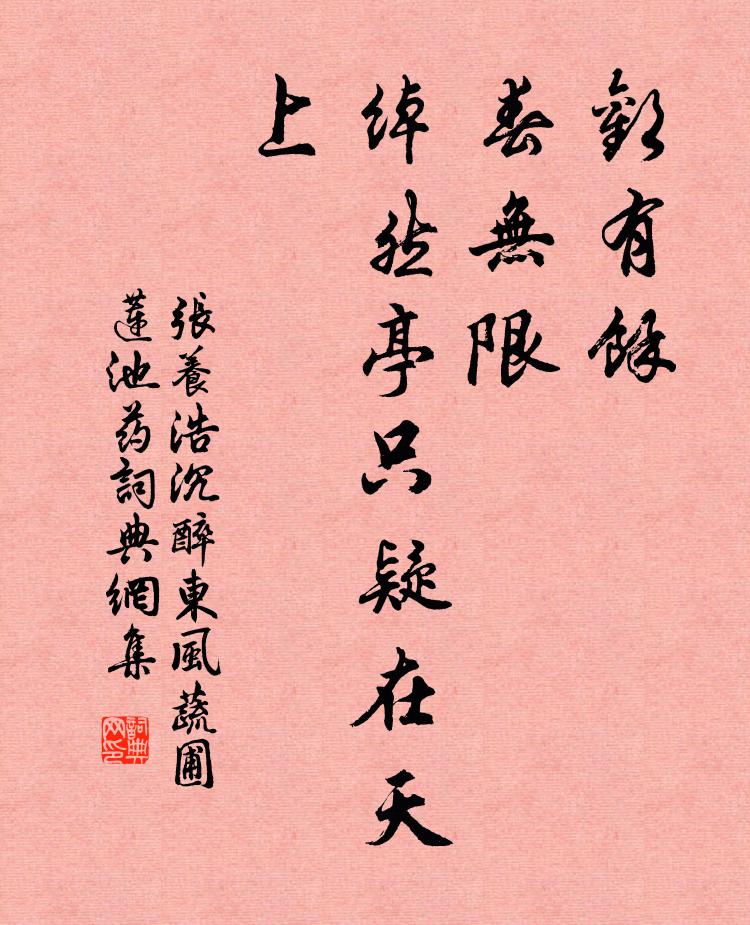 歡有餘
春無限
綽然亭只疑在天
上
張養浩沉醉東風蔬圃
蓮池药詞典網集
詞典
网印